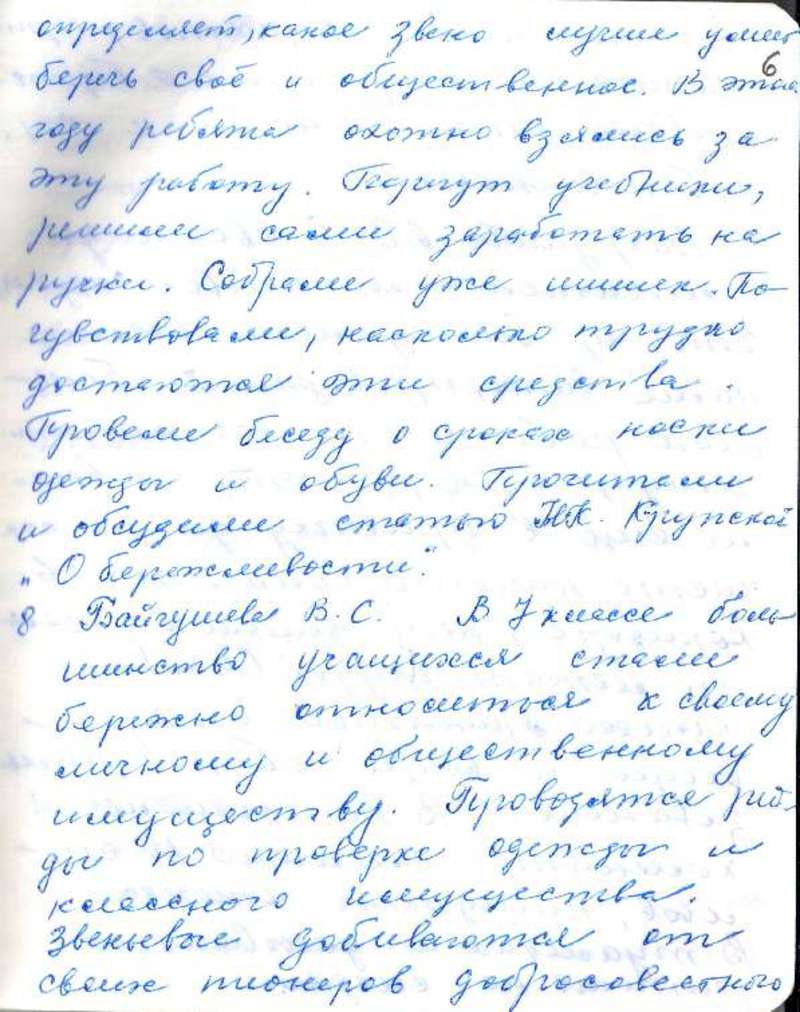 определяет, какое звено лучше умеет
6
беречь своё и общественное. В этом
году ребята охотно взялись за
эту работу. Берегут учебники,
решили сами заработать на
ручки. Собрали уже шишек. По-
чувствовали, насколько трудно
достаются эти средства.
Провели беседу о сроках носки
одежды и обуви. Прочитали
и обсудили статью Н.К. Крупской
„О бережливости".
8 Байгушева В.С. В 7 классе боль
шинство учащихся стали
бережно относиться к своему
личному и общественному
имуществу. Проводятся рей-
ды по проверке одежды и
классного имущества.
Звеньевые добиваются от
своих пионеров добросовестного